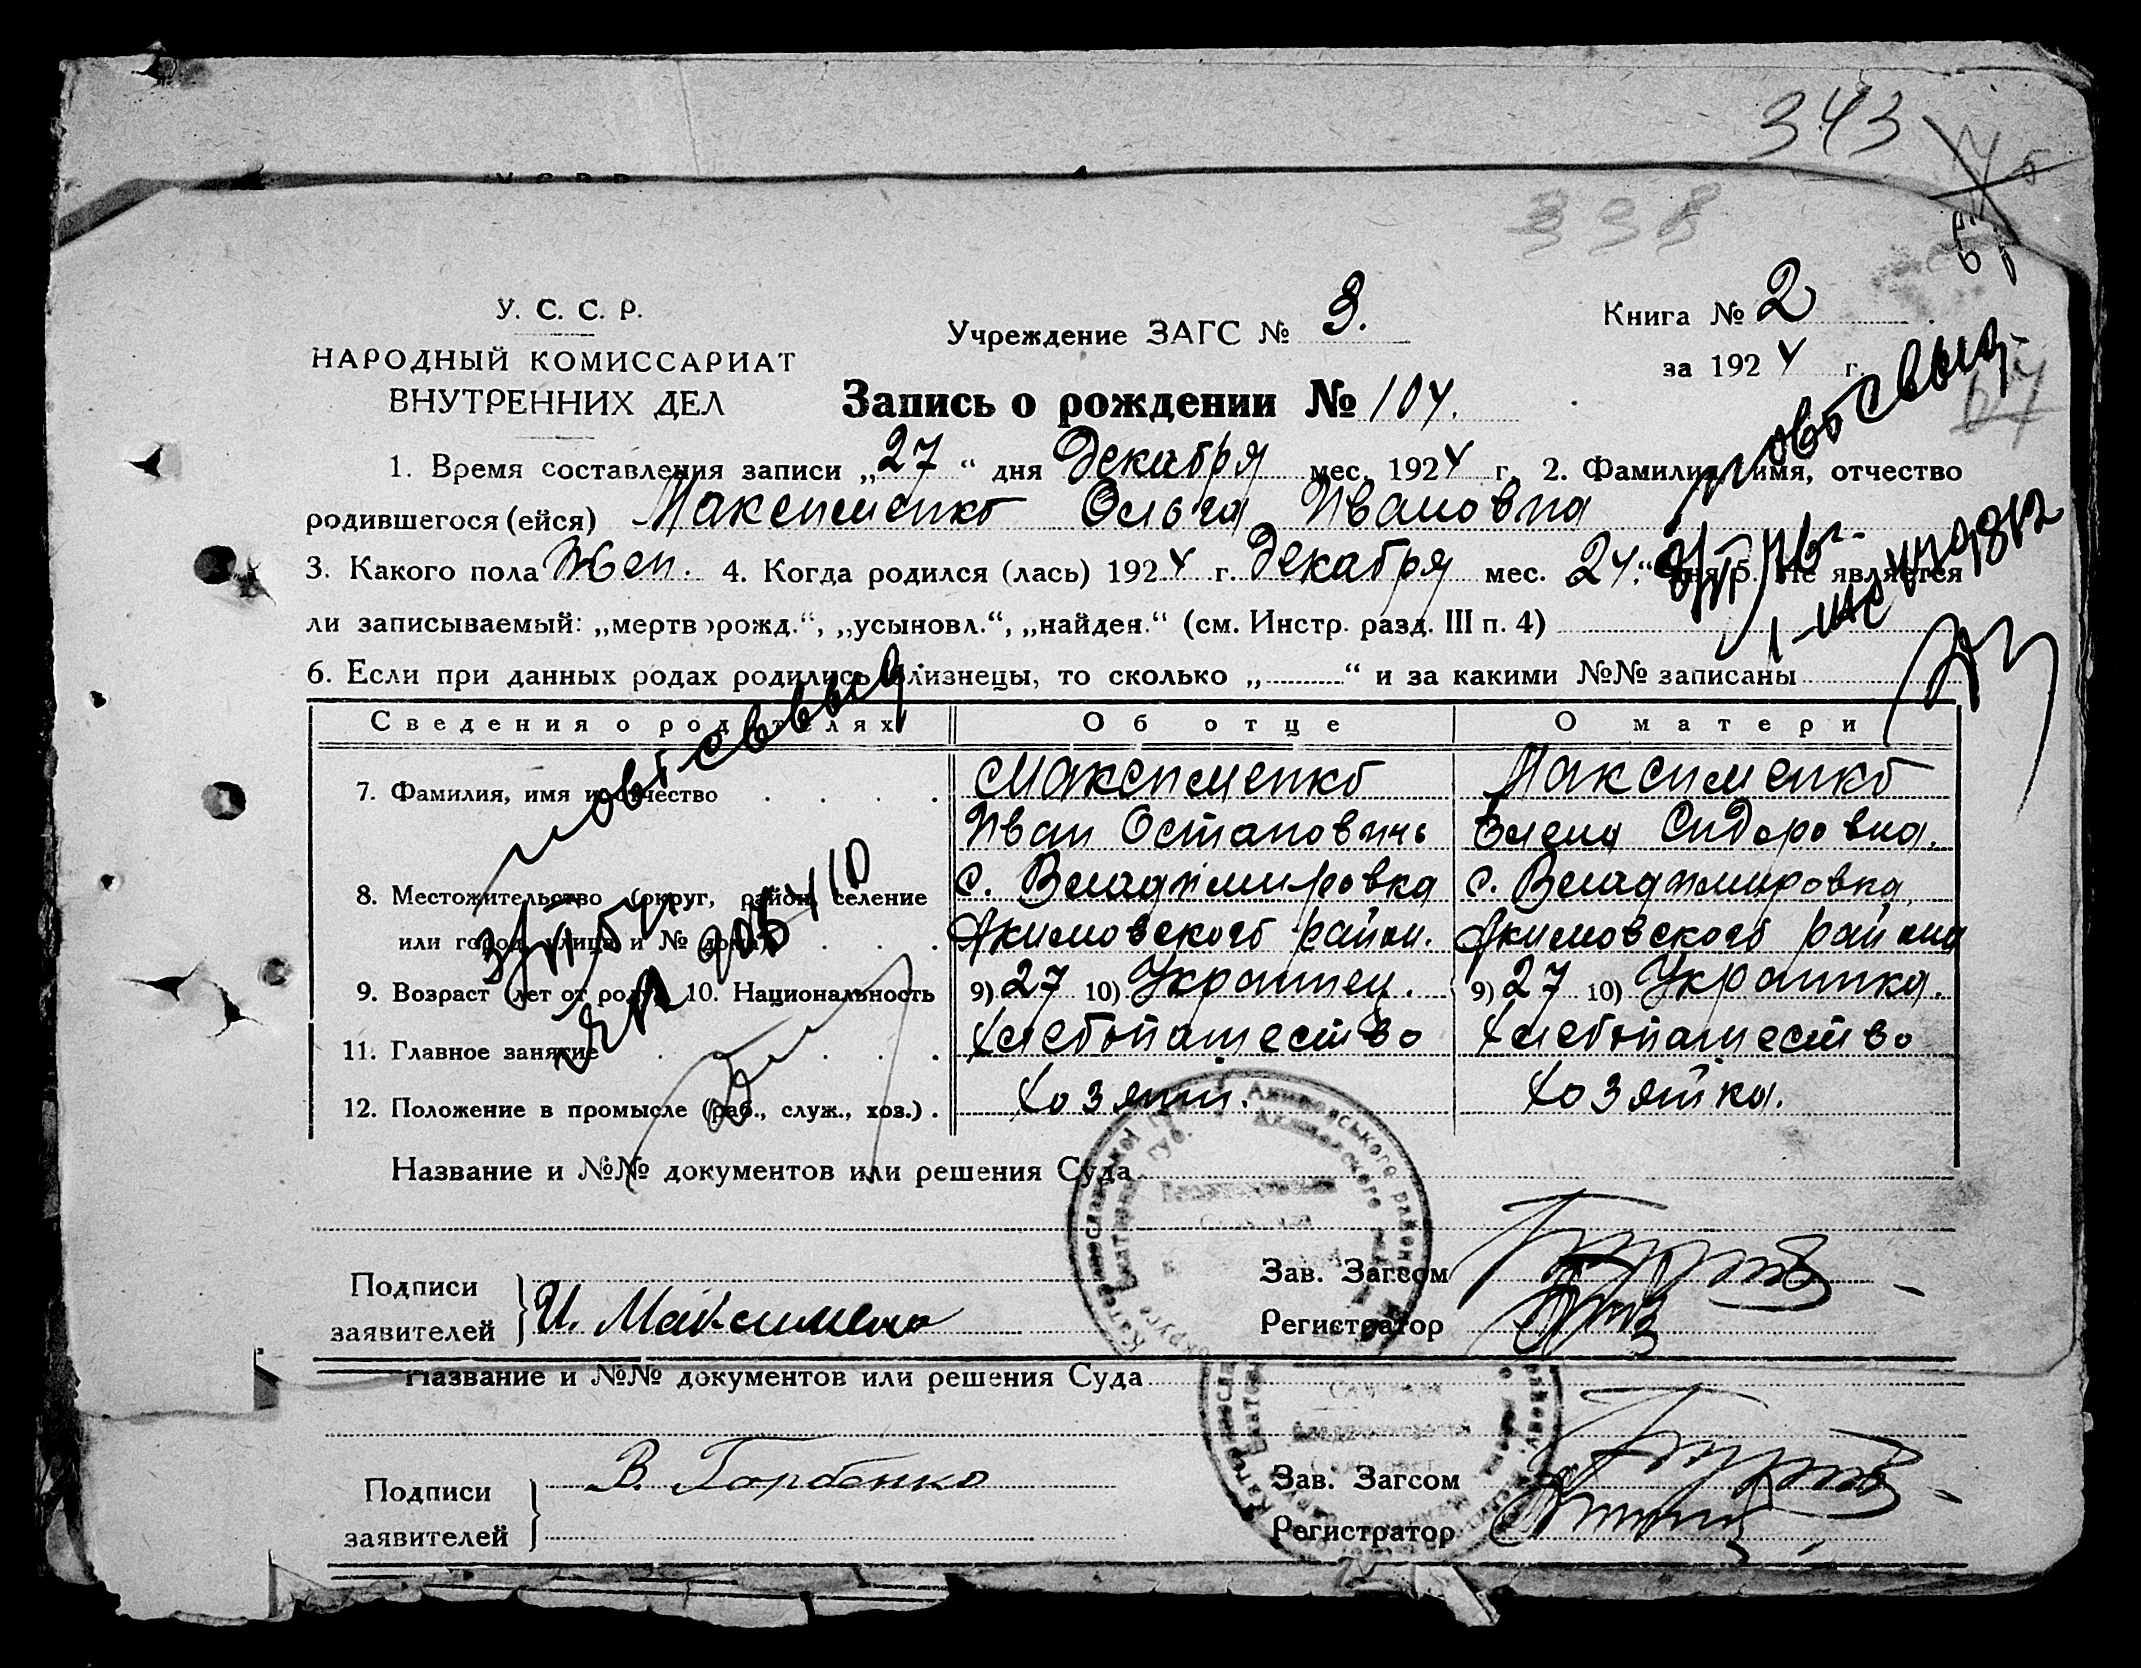 343
338
У. С. С. Р.
НАРОДНЫЙ КОМИССАРИАТ
ВНУТРЕННИХ ДЕЛ
Учреждение ЗАГС № 3.
Книга № 2
за 1924 г.
Запись о рождении № 104.
1. Время составления записи „27“ дня Декабря мес. 1924 г. 2. Фамилия, имя, отчество
родившегося (ейся) Максименко Ольга Ивановна
3. Какого пола Жен. 4. Когда родился (лась) 1924 г. Декабря мес. 24 “ дня 5. Не является
ли записываемый: „мертворожд.“, „усыновл.“, „найден.“ (см. Инстр. разд. III п. 4)
6. Если при данных родах родились близнецы, то сколько „ “ и за какими №№ записаны
Сведения о родителях Об отце О матери
7. Фамилия, имя и отчество Максименко Максименко
Иван Остапович Елена Сидоровна.
8. Местожительство (округ, район, селение с. Владимировка с. Владимировка
или город, улица и № дома) Акимовского район. Акимовского района
9. Возраст (лет от роду) 10. Национальность 9) 27 10) Украинец. 9) 27 10) Украинка.
11. Главное занятие Хлебопашество Хлебопашество
12. Положение в промысле (раб., служ., хоз.) Хозяин. Хозяйка.
Название и №№ документов или решения Суда
Подписи
заявителей И. Максименко
Зав. Загсом
Регистратор
Название и №№ документов или решения Суда
Подписи
заявителей В. Горбенко
Зав. Загсом
Регистратор